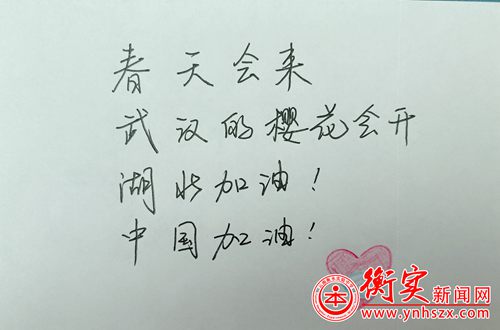 春天会来
武汉的樱花会开
湖北加油！
中国加油！
衡实新闻网
www.ynhszx.com